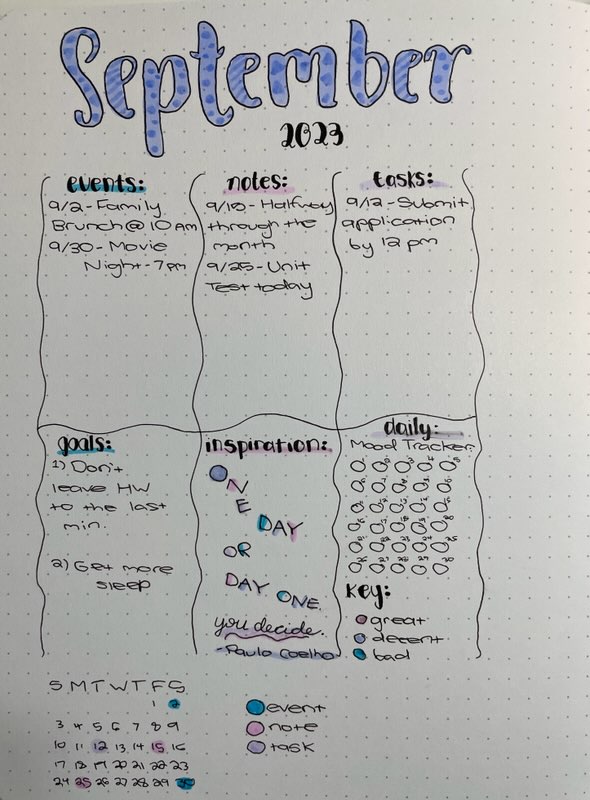 September
2023
events:
9/2-Family
Brunch @ 10 am
9/30-Movie
Night-7pm
notes:
9/15-Halfway
through the
month
9/25-Unit
Test today
tasks:
9/12-Submit
application
by 12 pm
goals:
1) Don't
leave HW
to the last
min.
2) Get more
sleep
inspiration:
ON
E
DAY
OR
DAY ONE.
you decide.
-Paulo Coelho
daily:
Mood Tracker
1 2 3 4 5
6 7 8 9 10
11 12 13 14 15
16 17 18 19 20
21 22 23 24 25
26 27 28 29 30
Key:
great
decent
bad
S M T W T F S
1 2
3 4 5 6 7 8 9
10 11 12 13 14 15 16
17 18 19 20 21 22 23
24 25 26 27 28 29 30
event
note
task